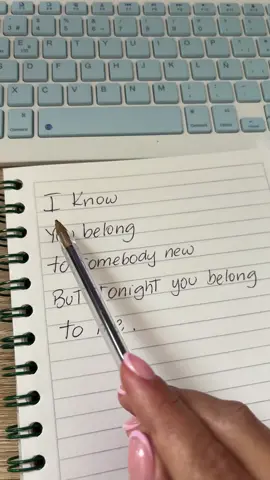 I Know
You belong
to somebody new
But tonight you belong
to